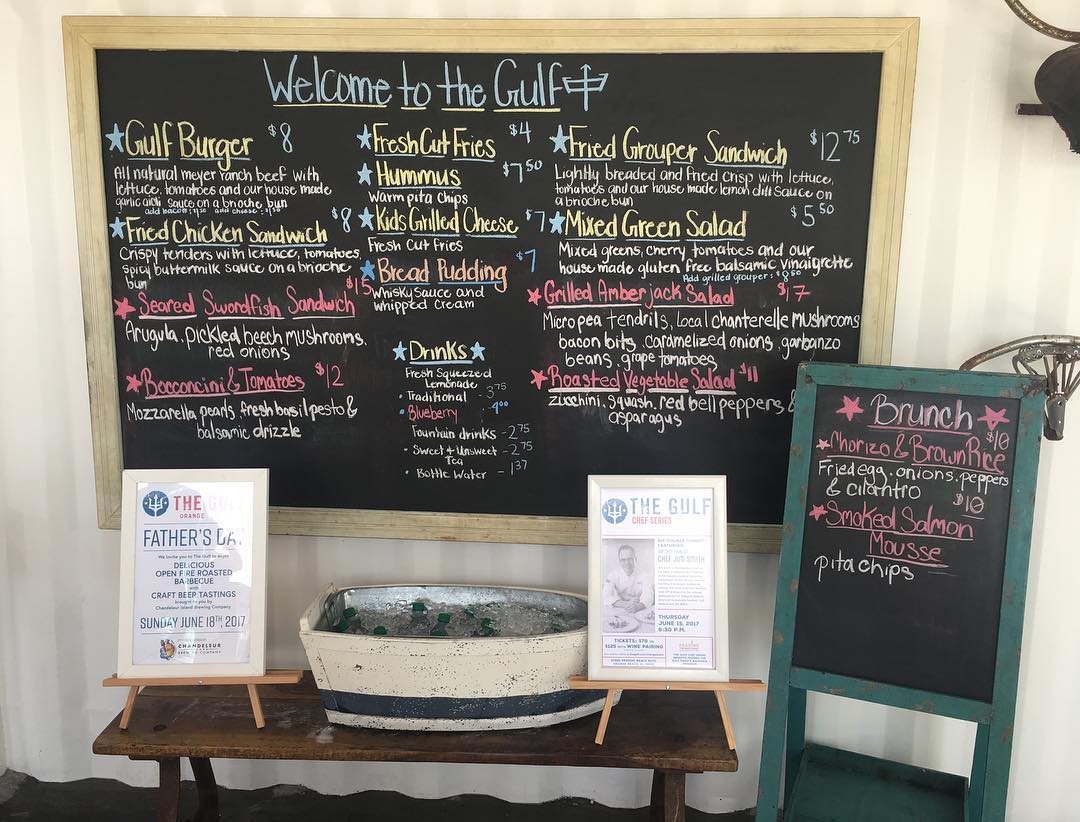 Welcome to the Gulf
Gulf Burger $8
All natural meyer ranch beef with
lettuce, tomatoes and our house made
garlic aioli sauce on a brioche bun
add bacon: 1.50 add cheese: 1.50
Fried Chicken Sandwich $8
Crispy tenders with lettuce, tomatoes,
spicy buttermilk sauce on a brioche
bun
Seared Swordfish Sandwich $15
Arugula, pickled beech mushrooms,
red onions
Bocconcini & Tomatoes $12
Mozzarella pearls, fresh basil pesto &
balsamic drizzle
Fresh Cut Fries $4
Hummus $7.50
warm pita chips
Kids Grilled Cheese $7
Fresh Cut Fries
Bread Pudding $7
Whisky Sauce and
whipped cream
Drinks
Fresh Squeezed
Lemonade
• Traditional - 3.75
• Blueberry - 4.00
Fountain drinks - 2.75
• Sweet & Unsweet - 2.75
Tea
• Bottle Water - 1.37
Fried Grouper Sandwich $12.75
Lightly breaded and fried crisp with lettuce,
tomatoes and our house made lemon dill sauce on
a brioche bun
Mixed Green Salad $5.50
Mixed greens, cherry tomatoes and our
house made gluten free balsamic vinaigrette
Add grilled grouper: $8.50
Grilled Amberjack Salad $17
Micro pea tendrils, Local chanterelle mushrooms
bacon bits, caramelized onions, garbanzo
beans, grape tomatoes
Roasted Vegetable Salad $11
zucchini, squash, red bell peppers &
asparagus
Brunch
Chorizo & Brown Rice $10
Fried egg, onions, peppers
& cilantro
Smoked Salmon $10
Mousse
pita chips
THE GULF
ORANGE
FATHER'S DAY
We invite you to The Gulf to enjoy
DELICIOUS
OPEN FIRE ROASTED
BARBECUE
with
CRAFT BEER TASTINGS
brought to you by
Chandeleur Island Brewing Company
SUNDAY JUNE 18TH, 2017
CHANDELEUR
BREWING COMPANY
THE GULF
CHEF SERIES
SIX COURSE DINNER
FEATURING
CHEF JIM SMITH
THURSDAY
JUNE 15, 2017
6:30 P.M.
TICKETS: $78 OR
$125 WITH WINE PAIRING